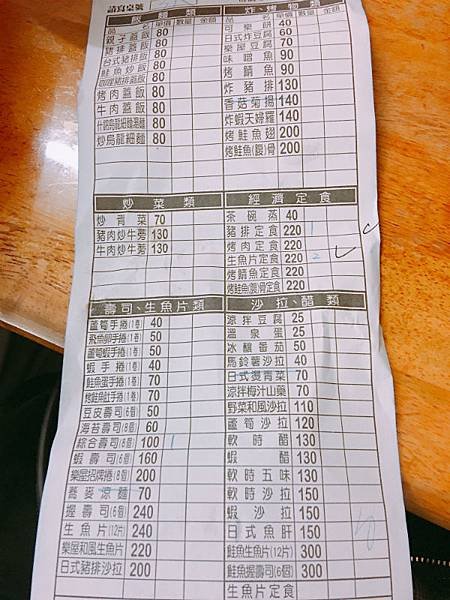 請寫桌號
飯類
品名 單價 數量 金額
親子蓋飯 80
豬排蓋飯 80
台式豬排飯 80
鮭魚炒飯 80
咖哩豬排飯 80
烤肉蓋飯 80
牛肉蓋飯 80
什錦烏龍細麵湯麵 80
炒烏龍細麵 80
炸、烤物類
品名 單價 數量 金額
可樂餅 40
日式炸豆腐 60
樂屋豆腐 70
味噌魚 90
烤鯖魚 90
炸豬排 130
香菇菊揚 140
炸蝦天婦羅 140
烤鮭魚翅 200
烤鮭魚(腹)骨 200
炒菜類
炒青菜 70
豬肉炒牛蒡 130
牛肉炒牛蒡 130
經濟定食
茶碗蒸 40
豬排定食 220 1
烤肉定食 220
生魚片定食 220 2
烤鯖魚定食 220
烤鮭魚(腹)骨定食 220
壽司、生魚片類
蘆筍手捲(1卷) 40
飛魚卵手捲(1卷) 50
蘆筍蝦手捲(1卷) 50
蝦手捲(1卷) 40
鮭魚蛋手捲(1卷) 70
烤鮭魚肚手捲(1卷) 70
豆皮壽司(6個) 50
海苔壽司(8個) 60
綜合壽司(8個) 100 1
蝦壽司(6個) 160
樂屋招牌捲(8個) 200
蕎麥涼麵 70
握壽司(6個) 240
生魚片(12片) 240
樂屋和風生魚片 220
日式豬排沙拉 200
沙拉、醋類
涼拌豆腐 25
溫泉蛋 25
冰釀番茄 50
馬鈴薯沙拉 40
日式燙青菜 70
涼拌梅汁山藥 70
野菜和風沙拉 110
蘆筍沙拉 120
軟時醋 130
蝦醋 130
軟時五味 130
軟時沙拉 150
蝦沙拉 150
日式魚肝 150
鮭魚生魚片(12片) 300
鮭魚握壽司(6個) 300
生魚片定食